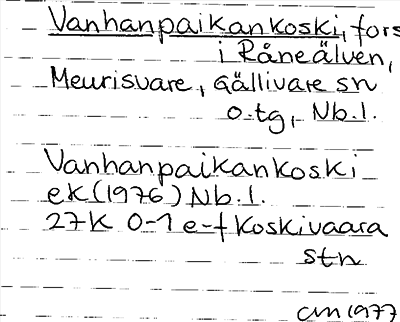 Vanhanpaikankoski, fors
i Råneälven,
Meurisvare, Gällivare sn
o. tg, Nb. l.
Vanhanpaikankoski
ek (1976) Nb. l.
27K 0-1 e-f Koskivaara
stn
CM 1977